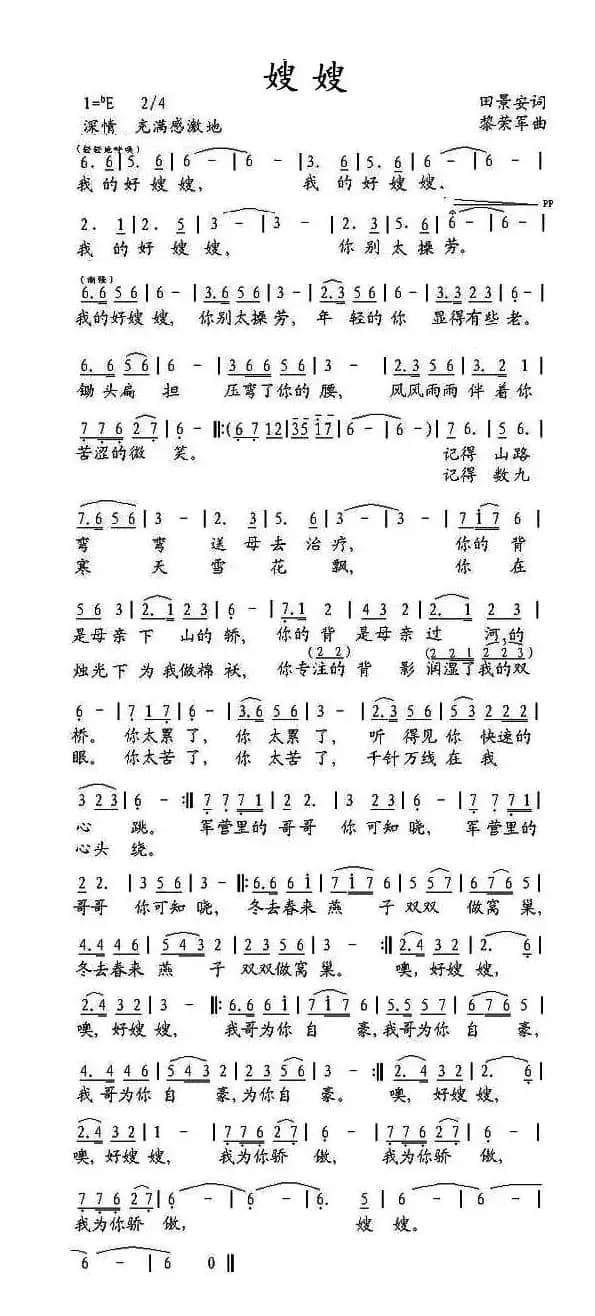 嫂嫂
1=♭E 2/4 田景安词
深情 充满感激地 黎荣军曲
(轻轻地呼唤)
6. 6|5. 6|6 -|6 -|3. 6|5. 6|6 -|6 -|
我的好嫂嫂， 我的好嫂嫂．
PP
2. 1|2. 5|3 -|3 -|2. 3|5. 6|6 -|6 -|
我的好嫂嫂， 你别太操劳。
6.6 5 6|6 -|3.6 5 6|3 -|2.3 5 6|6 -|3.3 2 3|6 -|
我的好嫂嫂，你别太操劳，年轻的你 显得有些老。
6. 6 5 6|6 -|3 6 6 5 6|3 -|2.3 5 6|3. 2|2 1|
锄头扁担 压弯了你的腰， 风风雨雨伴着你
7 7 6 2 7|6 -‖:(6 7 12|35 17|6 -|6 -)|7 6.|5 6|
苦涩的微笑。 记得山路
记得数九
7.6 5 6|3 -|2. 3|5. 6|3 -|3 -|7 i 7 6|
弯弯送母去治疗， 你的背
寒天雪花飘， 你在
5 6 3|2. 1 2 3|6 -|7.1 2|4 3 2|2. 1|2 3|
是母亲下山的轿，你的背是母亲过河,的
(2 2) (2 2 1 2 2 3)
烛光下为我做棉袄，你专注的背影润湿了我的双
6 -|7 1 7|6 -|3.6 5 6|3 -|2.3 5 6|5 3 2 2 2|
桥。你太累了，你太累了，听得见你快速的
眼。你太苦了，你太苦了，千针万线在我
3 2 3|6 -:‖7 7 7 1|2 2.|3 5 6|3 -|7 7 7 1|
心跳。 军营里的哥哥你可知晓，军营里的
心头绕。
2 2.|3 5 6|3 -‖:6.6 6 i|7 i 7 6|5 5 7|6 7 6 5|
哥哥你可知晓，冬去春来燕子双双做窝巢，
4.4 4 6|5 4 3 2|2 3 5 6|3 -:‖2.4 3 2|2. 6|
冬去春来燕子双双做窝巢。噢,好嫂嫂，
2.4 3 2|3 -‖:6.6 6 i|7 i 7 6|5.5 5 7|6 7 6 5|
噢,好嫂嫂， 我哥为你自豪,我哥为你自豪，
4. 4 4 6|5 4 3 2|2 3 5 6|3 -:‖2.4 3 2|2. 6|
我哥为你自豪,为你自豪。 噢,好嫂嫂，
2.4 3 2|1 -|7 7 6 2 7|6 -|7 7 6 2 7|6 -|
噢,好嫂嫂， 我为你骄傲， 我为你骄傲，
7 7 6 2 7|6 -|6 -|6 -|6. 5|6 -|
我为你骄傲， 嫂嫂。
6 -|6 0‖